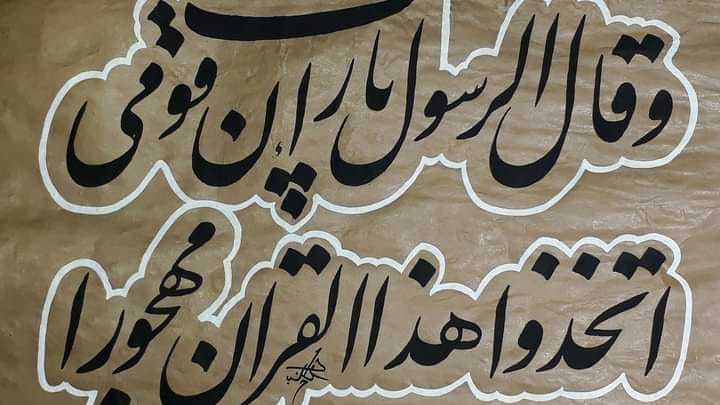 وقال الرسول يارب إن قومي
اتخذوا هذا القران مهجورا